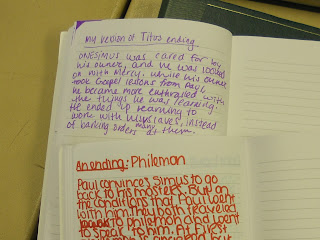 My version of Titus ending.
ONESIMUS was cared for by
his owner, and he was looked
on with Mercy, while his owner
took Gospel lessons from Paul
he became more enthralled with
the things he was learning.
He ended up learning to
work with his slaves, instead
of barking orders many at them.
An ending: Philemon
Paul convinces Simus to go
back to his masters. But on
the conditions that Paul went
with him. They both traveled
to Philemon and Paul went
to speak to him. At First